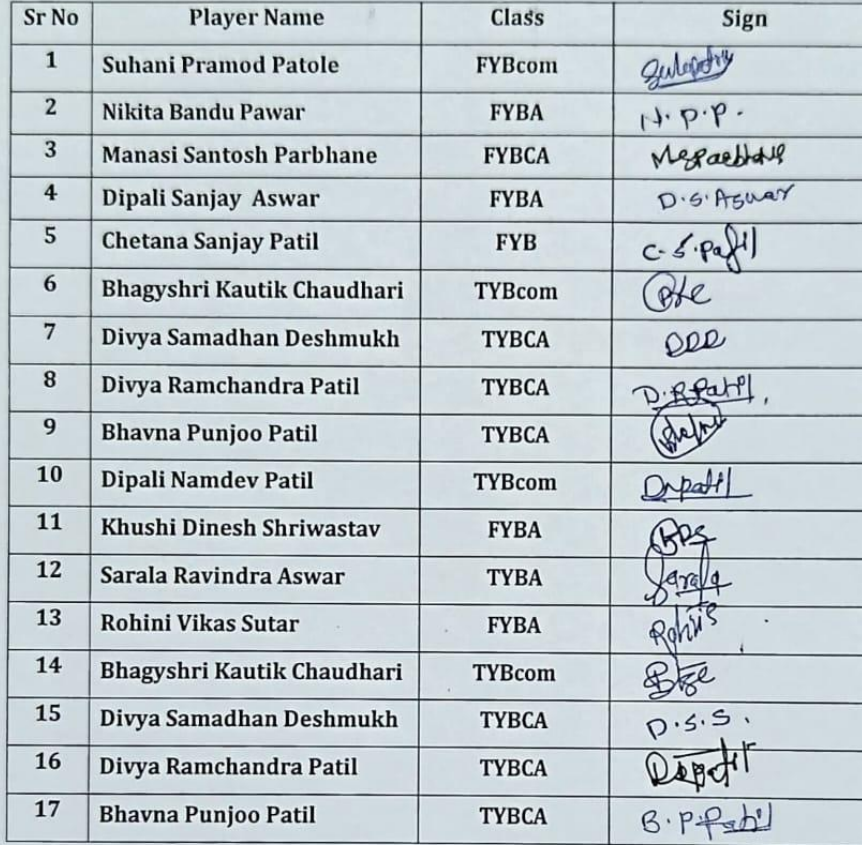 Sr No Player Name Class Sign
1 Suhani Pramod Patole FYBcom
2 Nikita Bandu Pawar FYBA N.P.P.
3 Manasi Santosh Parbhane FYBCA
4 Dipali Sanjay Aswar FYBA D.S.Aswar
5 Chetana Sanjay Patil FYB C.S.Patil
6 Bhagyshri Kautik Chaudhari TYBcom
7 Divya Samadhan Deshmukh TYBCA
8 Divya Ramchandra Patil TYBCA D.R.Patil
9 Bhavna Punjoo Patil TYBCA
10 Dipali Namdev Patil TYBcom Dnpatil
11 Khushi Dinesh Shriwastav FYBA
12 Sarala Ravindra Aswar TYBA Sarala
13 Rohini Vikas Sutar FYBA
14 Bhagyshri Kautik Chaudhari TYBcom
15 Divya Samadhan Deshmukh TYBCA D.S.S.
16 Divya Ramchandra Patil TYBCA
17 Bhavna Punjoo Patil TYBCA B.P.Patil